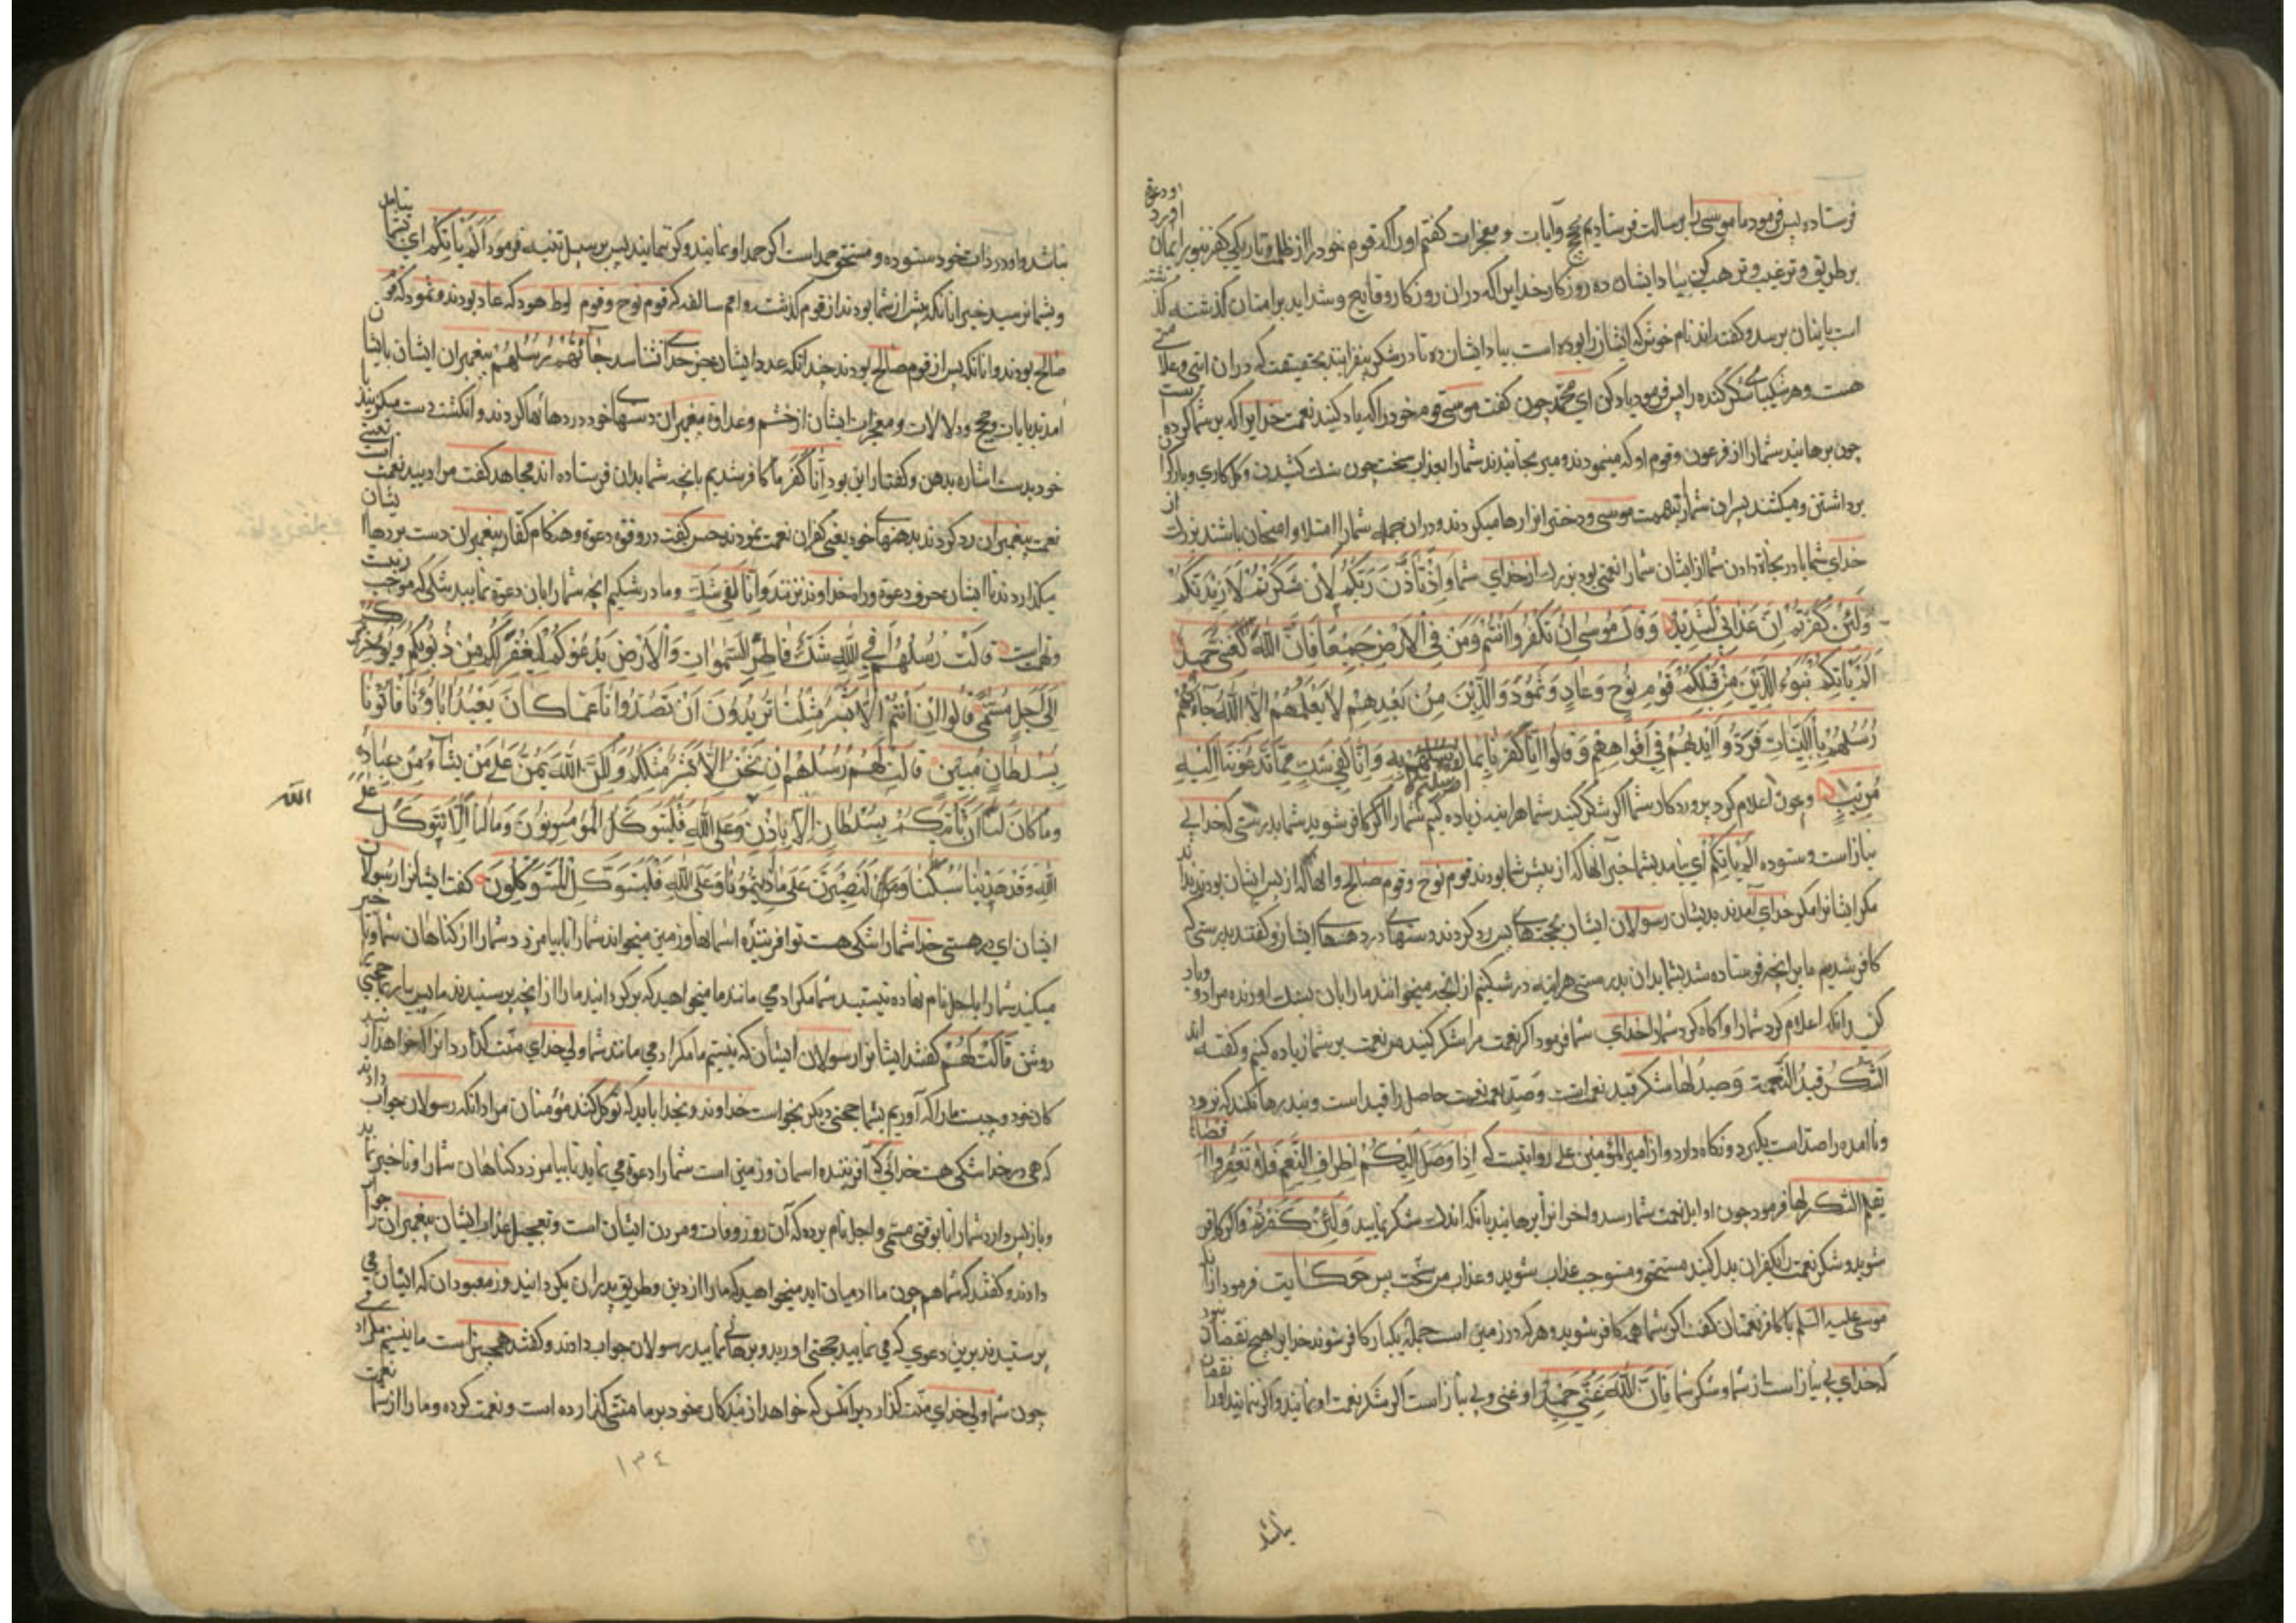 فرستاده پس فرمود ما موسی را برسالت فرستادیم بحجج وآیات و معجزات کفتیم اورا که قوم خود را از ظلمت وتاریکی کفر بنور ایمان اورد ودعوة
بر طریق وترغیب وترهیب کن بیاد ایشان ده روزکار خدایرا که دران روزکار وقایع وشداید بر امتان کذشته کذشته
است بایشان برسد وکفته اند نام خوش که ایشان را بوده است بیاد ایشان ده تا در شکر بیفزایند بحقیقت که دران ایتی وعلامتی
هست وهر شکیبای شکر کننده را پس فرمود یاد کن ای محمد چون کفت موسی قوم خود را که یاد کنید نعمت خدایرا که بر شما کرده است
چون برهانید شمارا از فرعون وقوم او که مینمودند ومیرنجانیدند شمارا بعذاب سخت چون سنک کشیدن وکل کاری وبار کران
برداشتن ومیکشند پسران شمارا بتهمت موسی ودختر انرا رها میکردند ودران جمله شمارا ابتلا وامتحان باشد بزرک از
خدای شما یا در نجاة دادن شما از ایشان شمارا نعمتی بود بزرک از خدای شما وَاِذْ تَأَذَّنَ رَبُّكُمْ لَاِنْ شَكَرْتُمْ لَاَزِيدَنَّكُمْ
وَلَئِنْ كَفَرْتُمْ اِنَّ عَذَابِي لَشَدِيدٌ وَقَالَ مُوسٰى اِنْ تَكْفُرُوا اَنْتُمْ وَمَنْ فِي الْاَرْضِ جَمِيعًا فَاِنَّ اللهَ لَغَنِيٌّ حَمِيدٌ
اَلَمْ يَأْتِكُمْ نَبَؤُ الَّذِينَ مِنْ قَبْلِكُمْ قَوْمِ نُوحٍ وَعَادٍ وَثَمُودَ وَالَّذِينَ مِنْ بَعْدِهِمْ لَا يَعْلَمُهُمْ اِلَّا اللهُ جَآءَتْهُمْ
رُسُلُهُمْ بِالْبَيِّنَاتِ فَرَدُّوا اَيْدِيَهُمْ فِي اَفْوَاهِهِمْ وَقَالُوا اِنَّا كَفَرْنَا بِمَا اُرْسِلْتُمْ بِهِ وَاِنَّا لَفِي شَكٍّ مِمَّا تَدْعُونَنَا اِلَيْهِ
مُرِيبٍ وچون اعلام کرد پروردکار شما اکر شکر کنید شما هراینه زیاده کنیم شمارا اکر کافر شوید شما بدرستی که خدا بی
نیاز است وستوده اَلَمْ يَأْتِكُمْ ای نیامد بشما خبر آنها که از پیش شما بودند قوم نوح وقوم صالح وانها که از پس ایشان بودند ندانند
مکر ایشانرا مکر خدای آمدند بدیشان رسولان ایشان بحجتهای پس رد کردند دستهای در دهنهای ایشان وکفتند بدرستی که
کافر شدیم ما بر انچه فرستاده شد بشما بدان بدرستی هراینه در شکیم از انچه میخوانند مارا بان بشک اورنده مراد ویاد
کن زانکه اعلام کرد شمارا واکاه کرد شمارا خدای شما فرمود اکر نعمت مرا شکر کنید من نعمت بر شما زیاده کنیم وکفته اند
اَلشُّكْرُ قَيْدُ النِّعْمَةِ وَصَيْدٌ لَهَا شکر قید نعمتست وصید نعمت نعمت حاصل را قید است وبند رها نکند که برود
ونا امده را صید است بکیرد ونکاه دارد واز امیر المؤمنین علی روایتست که اِذَا وَصَلَ اِلَيْكُمْ اَطْرَافُ النِّعَمِ فَلَا تُنَفِّرُوا
بقلة الشکر لها فرمود چون اوایل نعمت شما رسد واخر انرا برهانید بانکه اندک شکر نمایید وَلَئِنْ كَفَرْتُمْ واکر کافر
شوید وشکر نعمت را بکفران بدل کنید مستحق ومستوجب عذاب شوید وعذاب من سخت پس حکایت فرمود از
موسی علیه السلم با کافر نعمتان کفت اکر شما همه کافر شوید وهرکه در زمین است جمله بیکبار کافر شوند خدایرا هیچ نقصان نبود
که خدای بی نیاز است از شما وشکر شما فَاِنَّ اللهَ غَنِيٌّ حَمِيدٌ او غنی وبی نیاز است اکر شکر نعمت او نمایید واکر ننمایید اورا نقصان
باشد
نباشد واو در ذات خود ستوده ومستحق حمد است اکر حمد او نمایید وکر ننمایید پس بر سبیل تنبیه فرمود اَلَمْ يَأْتِكُمْ ای نیامد بشما
وبشما نرسید خبر انانکه پیش از شما بودند از قوم کذشته وامم سالفه که قوم نوح وقوم لوط هود که عاد بودند وثمود که قوم
صالح بودند وانانکه پس از قوم صالح بودند چندانکه عدد ایشان بجز خدای نشناسد جَآءَتْهُمْ رُسُلُهُمْ پیغمبران ایشان بایشان
امدند بایات وحجج ودلالات ومعجزات ایشان از خشم وعداوة پیغمبران دستهای خود در دهانها کردند وانکشت دست میکزیدند یا
خود بدست اشاره بدهن وکفتار این بود اِنَّا كَفَرْنَا ما کافر شدیم بانچه شما بدان فرستاده اند مجاهد کفت مراد بید نعمت است یعنی
نعمت پیغمبران رد کردند بدهنهای خود یعنی کفران نعمت نمودند حسن کفت در وقت دعوة وهنکام کفتار پیغمبران دست بر دهان ایشان
میکذاردند تا ایشان بحرف دعوة وراه خداوند نزنند وَاِنَّا لَفِي شَكٍّ وما در شکیم انچه شمارا بان دعوة نمایید شکی که موجب ریبت
وتهمت است قَالَتْ رُسُلُهُمْ اَفِي اللهِ شَكٌّ فَاطِرِ السَّمٰوَاتِ وَالْاَرْضِ يَدْعُوكُمْ لِيَغْفِرَ لَكُمْ مِنْ ذُنُوبِكُمْ وَيُؤَخِّرَكُمْ
اِلٰى اَجَلٍ مُسَمًّى قَالُوا اِنْ اَنْتُمْ اِلَّا بَشَرٌ مِثْلُنَا تُرِيدُونَ اَنْ تَصُدُّونَا عَمَّا كَانَ يَعْبُدُ اٰبَاؤُنَا فَأْتُونَا
بِسُلْطَانٍ مُبِينٍ قَالَتْ لَهُمْ رُسُلُهُمْ اِنْ نَحْنُ اِلَّا بَشَرٌ مِثْلُكُمْ وَلٰكِنَّ اللهَ يَمُنُّ عَلٰى مَنْ يَشَآءُ مِنْ عِبَادِهِ
وَمَا كَانَ لَنَا اَنْ نَأْتِيَكُمْ بِسُلْطَانٍ اِلَّا بِاِذْنِ وَعَلَى اللهِ فَلْيَتَوَكَّلِ الْمُؤْمِنُونَ وَمَا لَنَا اَلَّا نَتَوَكَّلَ عَلَى
الله
اللهِ وَقَدْ هَدٰينَا سُبُلَنَا وَلَنَصْبِرَنَّ عَلٰى مَا اٰذَيْتُمُونَا وَعَلَى اللهِ فَلْيَتَوَكَّلِ الْمُتَوَكِّلُونَ کفت ایشانرا رسولان
ایشان ای در هستی خدا شمارا شکی هست تو افریننده اسمانها وزمین میخواند شمارا تا بیامرزد شمارا از کناهان شما وتاخیر
میکند شمارا باجل نام نهاده نیستید شما مکر ادمی مانند ما میخواهید که برکردانید مارا از انچه پرستیدند ما پس بیارید بحجتی
روشن قَالَتْ لَهُمْ کفتند ایشانرا رسولان ایشان که نیستیم ما مکر ادمی مانند شما ولی خدای منت کذارد انرا که خواهد از
کان خود وچیست مارا که آوریم بشما حجتی دیکر بخواست خداوند وبخدا باید که توکل کنند مؤمنان مراد انکه رسولان جواب دادند
که هی در خدا شکی هست خدائی که آفریننده اسمان وزمین است شمارا دعوة می نماید تا بیامرزد کناهان شمارا وتاخیر نماید
وباز پس دارد شمارا تا بوقتی مسمی واجل نام برده که آن روز وفات ومردن ایشان است وتعجیل عذاب ایشان پیغمبران را جواب
دادند وکفتند که شما هم چون ما ادمیان اید میخواهید که مارا از دین وطریق پدران بکردانید وز معبودان که ایشان می
پرستیدند برین دعوی که می نمایید حجتی اورید وبرهانی نمایید رسولان جواب دادند وکفتند همچنین است ما نیستیم مکر ادمی
چون شما ولی خدای منت کذارد برانکس که خواهد از بندکان خود بر ما منتی کذارده است ونعمت کرده ومارا از شما نعمت
۱۳٤